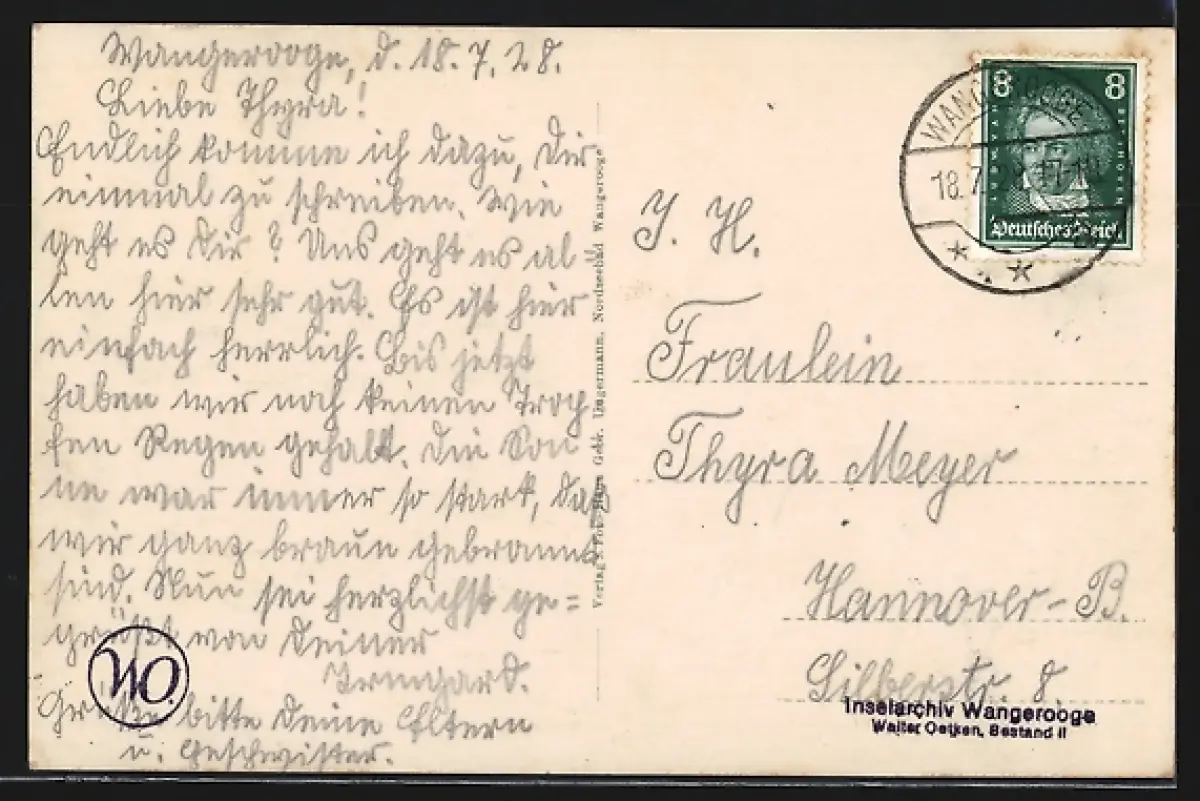 Wangerooge, d. 18.7.28.
Liebe Thyra!
Endlich komme ich dazu, Dir
einmal zu schreiben. Wie
geht es Dir? Uns geht es al
len hier sehr gut. Es ist hier
einfach herrlich. Bis jetzt
haben wir noch keinen Trop
fen Regen gehabt. Die Son
ne war immer so stark, daß
wir ganz braun gebrannt
sind. Nun sei herzlichst ge=
grüßt von Deiner
Irmgard.
Grüße bitte Deine Eltern
u. Geschwister.
WO.
Verlag v. Gebr. Lüngermann, Nordseebad Wangerooge
8 8
Deutsches Reich
WANGEROOGE
18.7. 17-18
J. H.
Fräulein
Thyra Meyer
Hannover-B.
Silberstr. 8.
Inselarchiv Wangerooge
Walter Oetken, Bestand II